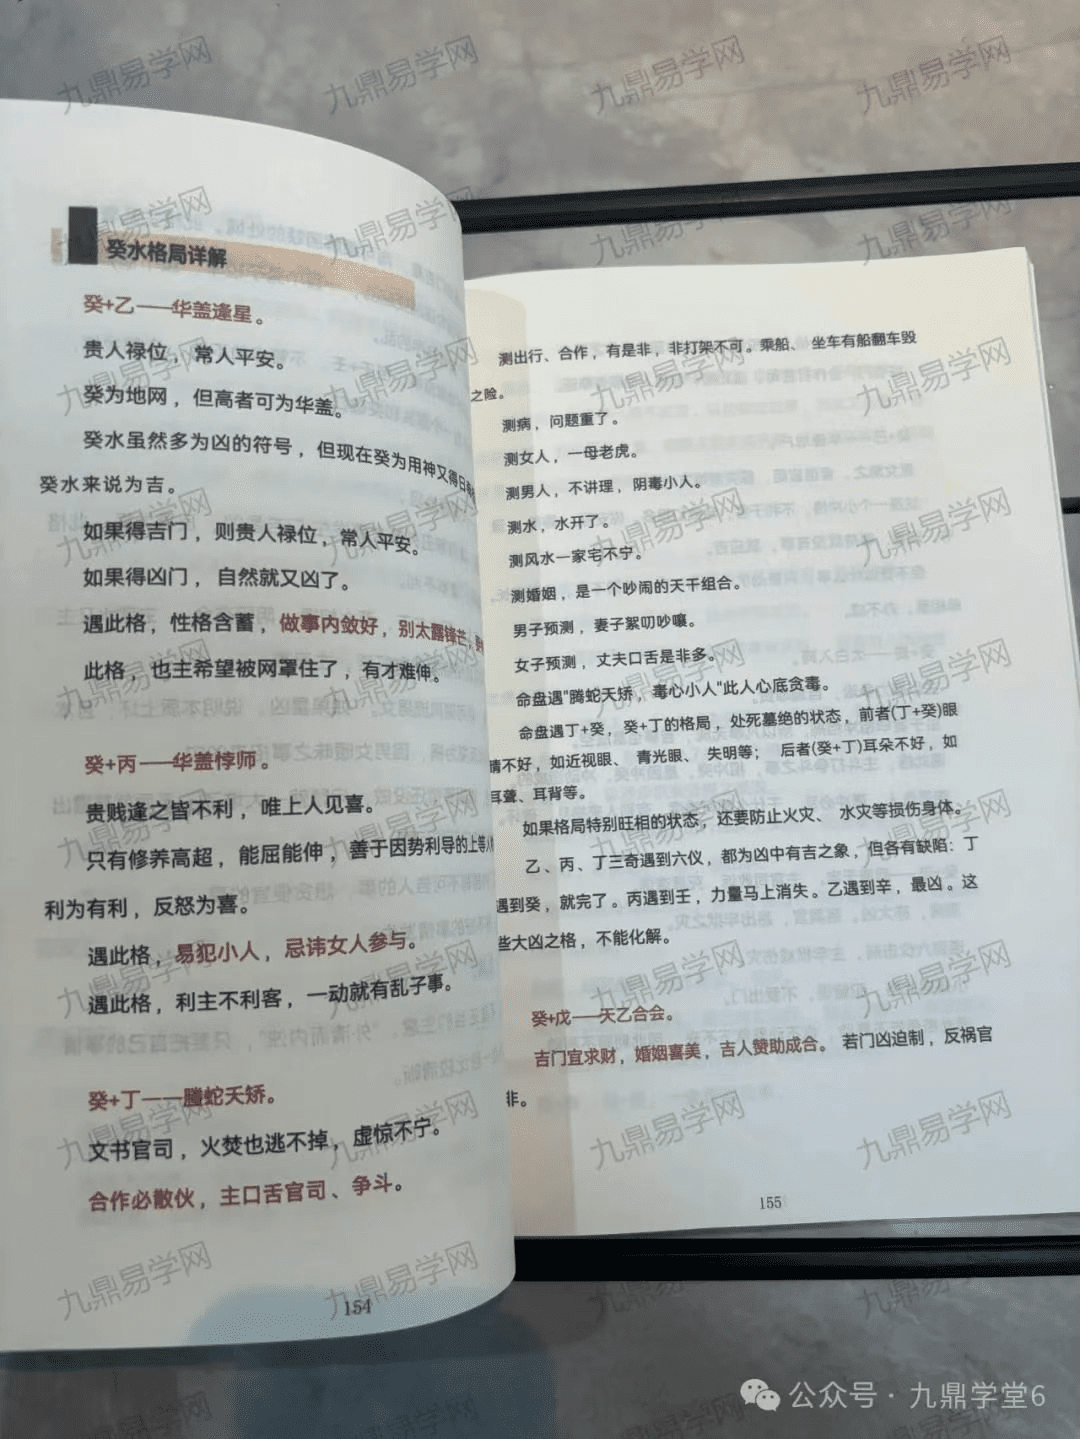 癸水格局详解
癸+乙——华盖逢星。
贵人禄位，常人平安。
癸为地网，但高者可为华盖。
癸水虽然多为凶的符号，但现在癸为用神又得日
癸水来说为吉。
如果得吉门，则贵人禄位，常人平安。
如果得凶门，自然就又凶了。
遇此格，性格含蓄，做事内敛好，别太露锋芒，
此格，也主希望被网罩住了，有才难伸。
癸+丙——华盖悖师。
贵贱逢之皆不利，唯上人见喜。
只有修养高超，能屈能伸，善于因势利导的上等人
利为有利，反怒为喜。
遇此格，易犯小人，忌讳女人参与。
遇此格，利主不利客，一动就有乱子事。
癸+丁——腾蛇夭矫。
文书官司，火焚也逃不掉，虚惊不宁。
合作必散伙，主口舌官司、争斗。
154
测出行、合作，有是非，非打架不可。乘船、坐车有船翻车毁
之险。
测病，问题重了。
测女人，一母老虎。
测男人，不讲理，阴毒小人。
测水，水开了。
测风水一家宅不宁。
测婚姻，是一个吵闹的天干组合。
男子预测，妻子絮叨吵嚷。
女子预测，丈夫口舌是非多。
命盘遇"腾蛇夭矫，毒心小人"此人心底贪毒。
命盘遇丁+癸，癸+丁的格局，处死墓绝的状态，前者(丁+癸)眼
睛不好，如近视眼、青光眼、失明等；后者(癸+丁)耳朵不好，如
耳聋、耳背等。
如果格局特别旺相的状态，还要防止火灾、水灾等损伤身体。
乙、丙、丁三奇遇到六仪，都为凶中有吉之象，但各有缺陷：丁
遇到癸，就完了。丙遇到壬，力量马上消失。乙遇到辛，最凶。这
些大凶之格，不能化解。
癸+戊——天乙合会。
吉门宜求财，婚姻喜美，吉人赞助成合。若门凶迫制，反祸官
非。
155
九鼎易学网
公众号·九鼎学堂6